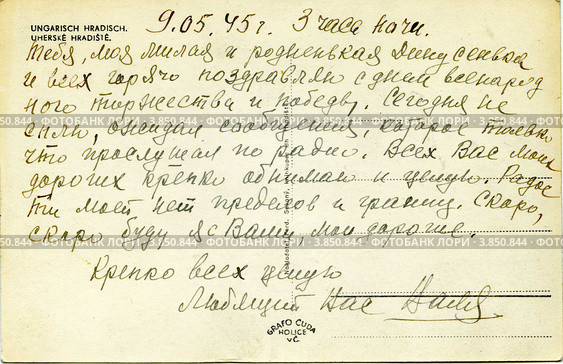 UNGARISCH HRADISCH.
UHERSKÉ HRADIŠTĚ.
9.05.45 г. 3 часа ночи.
Тебя, моя милая и родненькая
и всех горячо поздравляю с днем всенарод
ного торжества и победы. Сегодня не
сплю, ожидал сообщения, которое только
что прослушал по радио. Всех Вас моих
дорогих крепко обнимаю и целую. Радос
ти моей нет пределов и границ. Скоро,
скоро буду я с Вами, мои дорогие.
Крепко всех целую
Любящий Вас
GRAFO ČUDA
HOLICE
VČ.
3.850.844 - ФОТОБАНК ЛОРИ - 3.850.844 - ФОТОБАНК ЛОРИ - 3.850.844 - ФОТОБАНК ЛОРИ
3.850.844 - ФОТОБАНК ЛОРИ - 3.850.844 - ФОТОБАНК ЛОРИ - 3.850.844 - ФОТОБАНК ЛОРИ